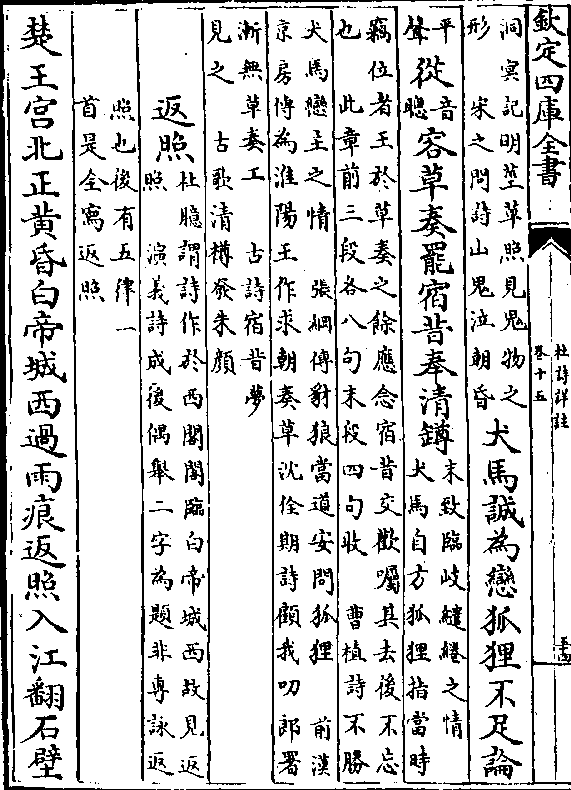 欽定四庫全書
杜詩詳註
卷十五
洞冥記明莖草照見鬼物之
形　宋之問詩山鬼泣朝昏
犬馬誠為戀狐狸不足論
平
聲
從
音
聰
容草奏罷宿昔奉清罇
末致臨岐繾綣之情
犬馬自方狐狸指當時
竊位者王於草奏之餘應念宿昔交歡囑其去後不忘
也　此章前三段各八句末段四句收　曹植詩不勝
犬馬戀主之情　張綱傳豺狼當道安問狐狸　前漢
京房傳為淮陽王作求朝奏草沈佺期詩顧我叨郎署
漸無草奏工　古詩宿昔夢
見之　古歌清樽發朱顏
返照
杜臆謂詩作於西閣閣臨白帝城西故見返
照　演義詩成後偶舉二字為題非專詠返
照也後有五律一
首是全寫返照
楚王宮北正黃昏白帝城西過雨痕返照入江翻石壁